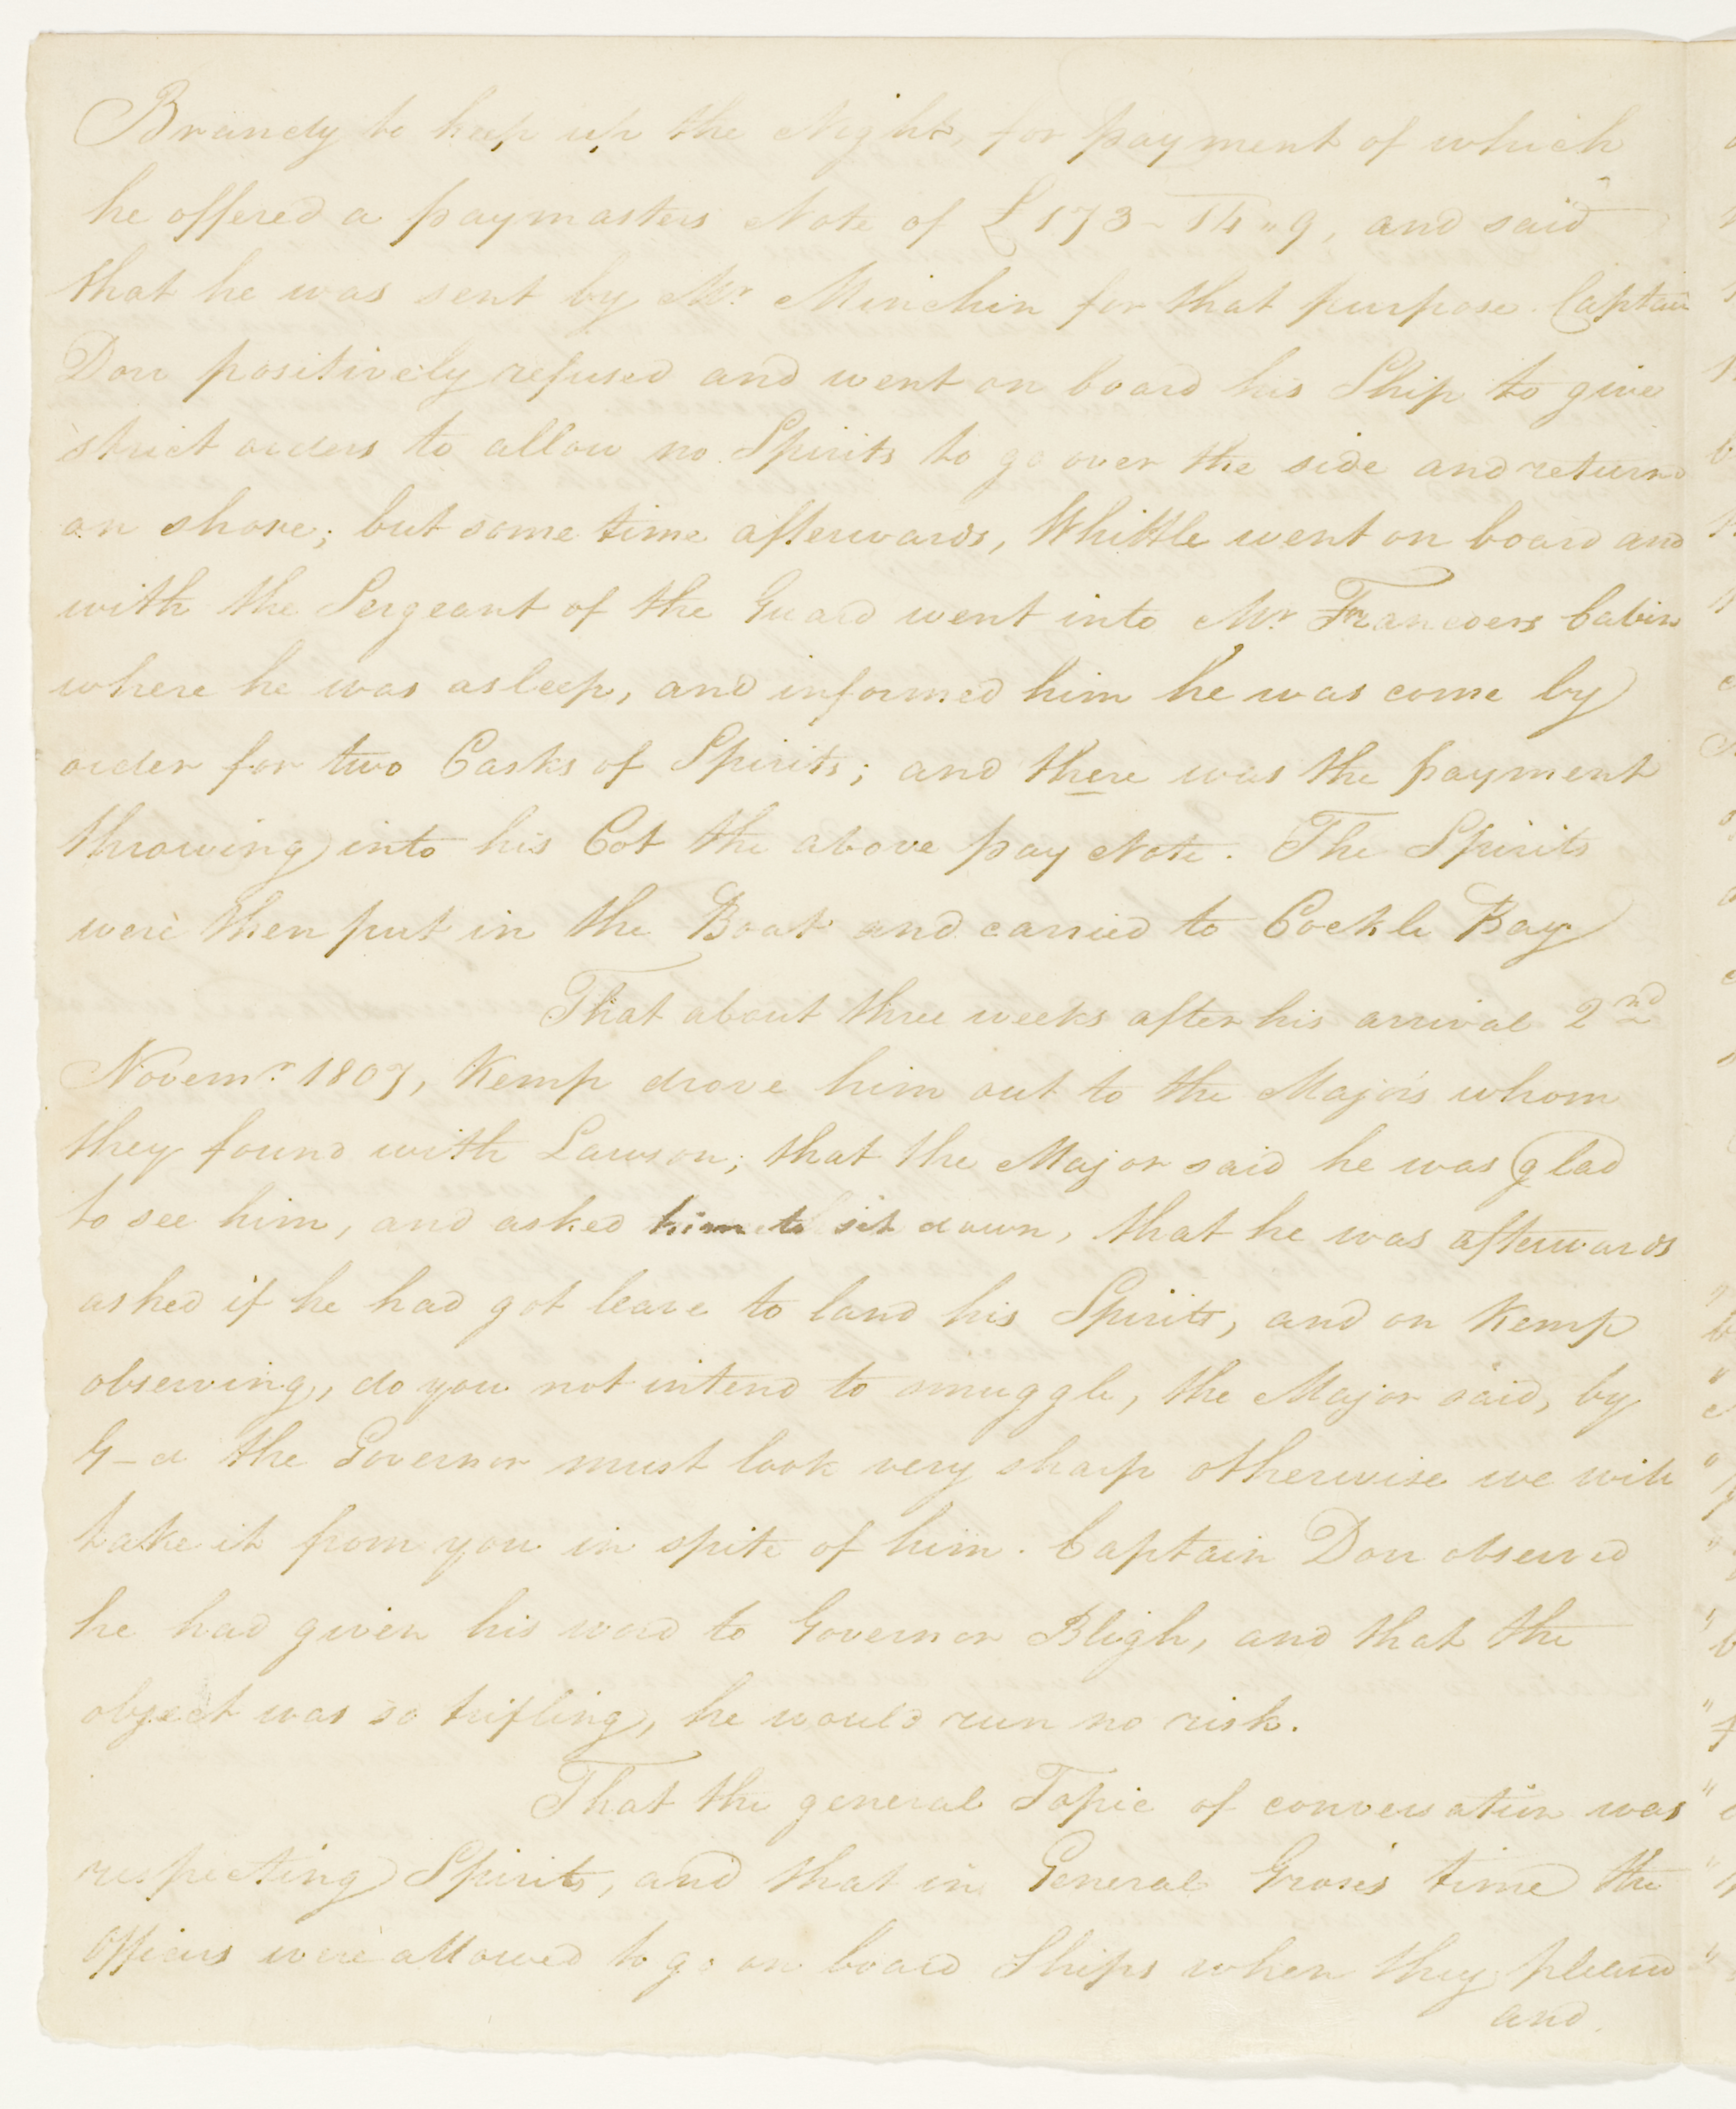 Brandy to keep up the Night, for payment of which
he offered a paymasters Note of £173-14"9, and said
that he was sent by Mr. Minchin for that purpose. Captain
Don positively refused and went on board his Ship to give
strict orders to allow no Spirits to go over the side and return'd
on shore; but some time afterwards, Whittle went on board and
with the Sergeant of the Guard went into Mr. Cabin
where he was asleep, and informed him he was come by
order for two Casks of Spirits; and there was the payment
throwing into his Cot the above pay Note. The Spirits
were then put in the Boat and carried to Cockle Bay
That about three weeks after his arrival 2nd
Novemr. 1807, Kemp drove him out to the Majors whom
they found with Lawson; that the Major said he was glad
to see him, and asked him to sit down, that he was afterwards
asked if he had got leave to land his Spirits, and on Kemp
observing, do you not intend to smuggle, the Major said, by
G-d the Governor must look very sharp otherwise we will
take it from you in spite of him. Captain Don observed
he had given his word to Governor Bligh, and that the
object was so trifling, he would run no risk.
That the general Topic of conversation was
respecting Spirits, and that in General Grose's time the
Officers were allowed to go on board Ships when they pleased
and